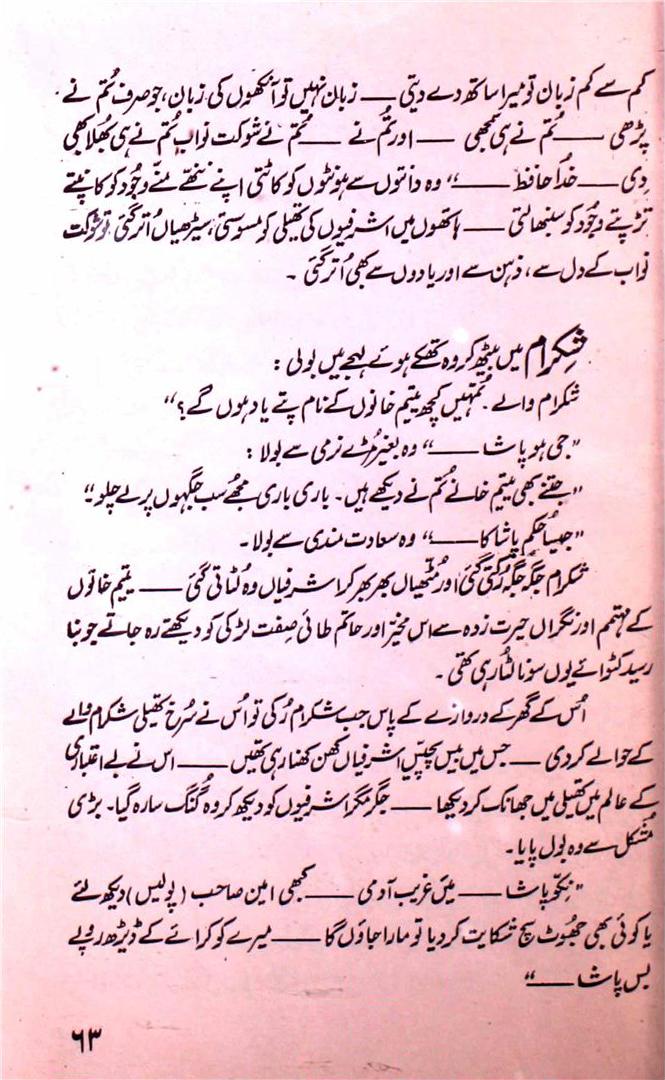 کم سے کم زبان تو میرا ساتھ دے دیتی —— زبان نہیں تو آنکھوں کی زبان، جو صرف تُم نے
پڑھی —— تُم نے ہی سمجھی —— اور تُم نے —— تُم نے شوکت نواب تُم نے ہی بُھلا بھی
دی —— خُدا حافظ ——" وہ دانتوں سے ہونٹوں کو کاٹتی اپنے ننّھے منّے وجُود کو کانپتے
تڑپتے وجُود کو سنبھالتی —— ہاتھوں میں اشرفیوں کی تھیلی کو مسوستی، سیڑھیاں اُتر گئی تو شوکت
نواب کے دل سے، ذہن سے اور یادوں سے بھی اُتر گئی ۔
شِکرام میں بیٹھ کر وہ تھکے ہوئے لہجے میں بولی :
شکرام والے۔ تُمہیں کچھ یتیم خانوں کے نام پتے یاد ہوں گے؟"
"جی ہو پاشا ——" وہ بغیر مُڑے نرمی سے بولا :
"جتنے بھی یتیم خانے تُم نے دیکھے ہیں۔ باری باری مجھے سب جگہوں پر لے چلو"
"جیسا حُکم پاشا کا ——" وہ سعادت مندی سے بولا۔
شکرام جگہ جگہ رُکتی گئی اور مُٹھیاں بھر بھر کر اشرفیاں وہ لٹاتی گئی —— یتیم خانوں
کے مہتمم اور نگراں حیرت زدہ سے اس مخیّر اور حاتم طائی صِفت لڑکی کو دیکھتے رہ جاتے جو بنا
رسید کٹوائے یوں سونا لُٹا رہی تھی ۔
اُس کے گھر کے دروازے کے پاس جب شکرام رُکی تو اُس نے سُرخ تھیلی شکرام والے
کے حوالے کر دی —— جس میں بیس پچیّس اشرفیاں کھن کھنا رہی تھیں —— اس نے بے اعتباری
کے عالم میں تھیلی میں جھانک کر دیکھا —— جگر مگر اشرفیوں کو دیکھ کر وہ گُنگ سا رہ گیا۔ بڑی
مُشکل سے وہ بول پایا۔
"نکّو پاشا —— میَں غریب آدمی —— کبھی امین صاحب (پولیس) دیکھ لئے
یا کوئی بھی جُھوٹ سچ شکایت کر دیا تو مارا جاؤں گا —— میرے کو کرائے کے ڈیڑھ روپے
بس پاشا ——"
۶۳